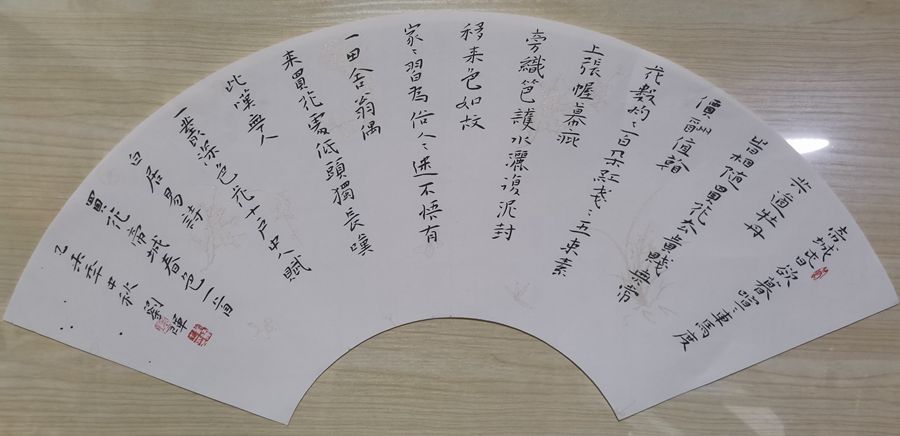 帝城春欲暮喧〻車馬度
共道牡丹
時相隨買花去貴賤無常
價酬值看
花數灼〻百朵紅戔〻五束素
上張幄幕庇
旁織笆護水灑復泥封
移來色如故
家〻習為俗人〻迷不悟有
一田舍翁偶
來買花處低頭獨長嘆
此嘆無人
一叢深色花十戶中人賦
白居易詩
買花帝城春色一首
乙未年秋劉